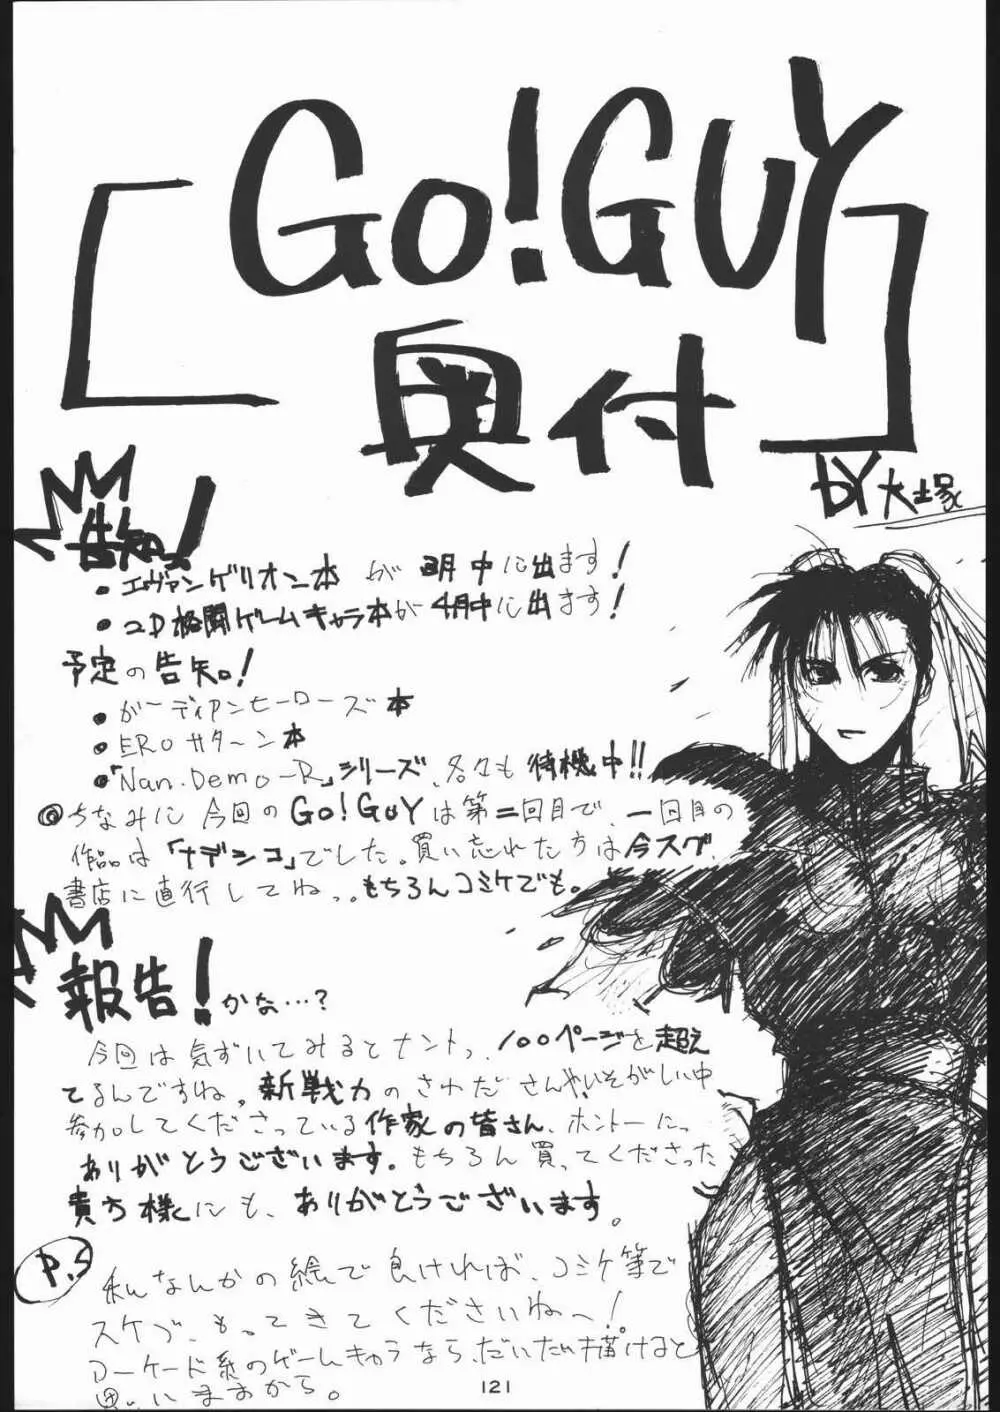 Go!GUY
奥付
by 大塚
告知!
・エヴァンゲリオン本 が 3月中に出ます!
・2D格闘ゲームキャラ本が4月中に出ます!
予定の告知!
・ガーディアンヒーローズ本
・EROサターン本
・「Nan.Demo-R」シリーズ、各々も待機中!!
◎ちなみに今回のGo!GUYは第二回目で、一回目の
作品は「ナデシコ」でした。買い忘れた方は今スグ、
書店に直行してねっ。もちろんコミケでも。
報告!かな…?
今回は気ずいてみるとナントっ、100ページを超え
てるんですね。新戦力のさわださんやいそがしい中
参加してくださっている作家の皆さん、ホントーにっ
ありがとうございます。もちろん買ってくださった
貴方様にも、ありがとうございます。
P.S
私なんかの絵で良ければ、コミケ等で
スケブ、もってきてくださいね〜!
アーケード系のゲームキャラなら、だいたい描けると
思いますから。
121